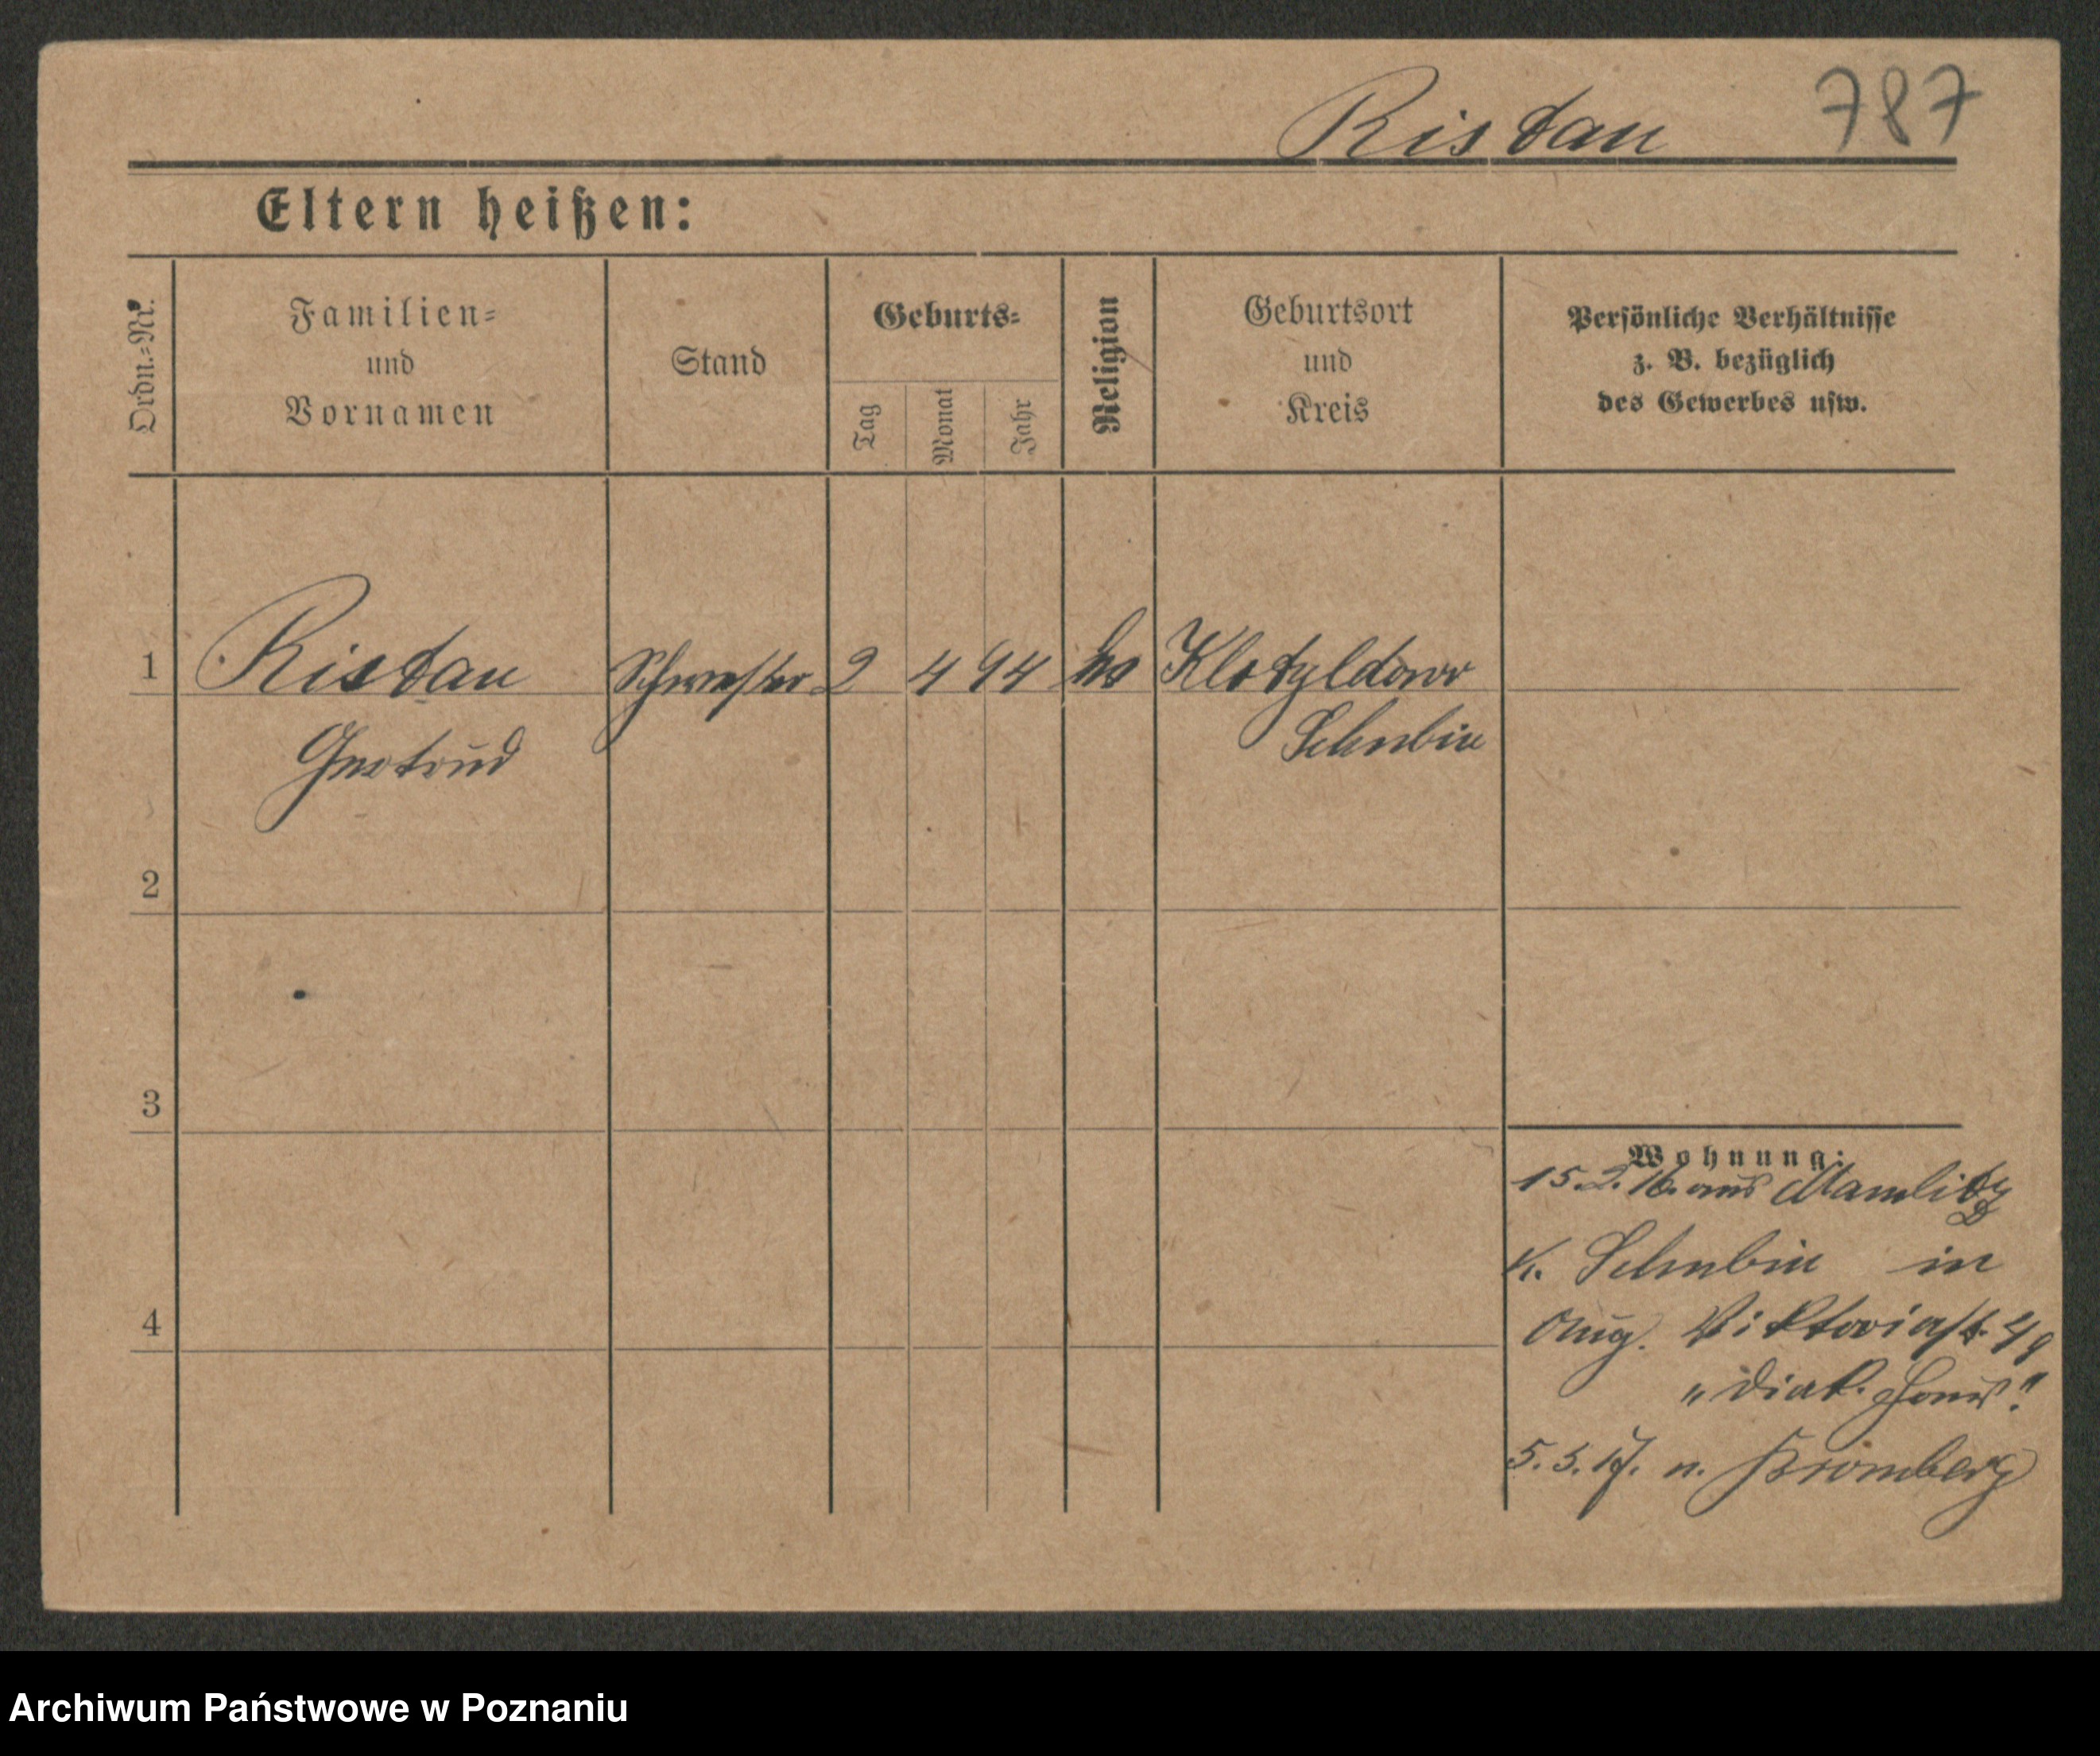 Ristau 787
Eltern heißen:
Ordn.-Nr.
Familien-
und
Vornamen
Stand
Geburts-
Tag
Monat
Jahr
Religion
Geburtsort
und
Kreis
Persönliche Verhältnisse
z. B. bezüglich
des Gewerbes usw.
1 Ristau Schwester 2 4 94 ev Klotyldowo
Gertrud Schubin
2
3
4
Wohnung:
15.2.16. aus Mamlitz
K. Schubin in
Aug. Viktoriast. 49
"Diak. Haus".
5.3.17. n. Bromberg
Archiwum Państwowe w Poznaniu